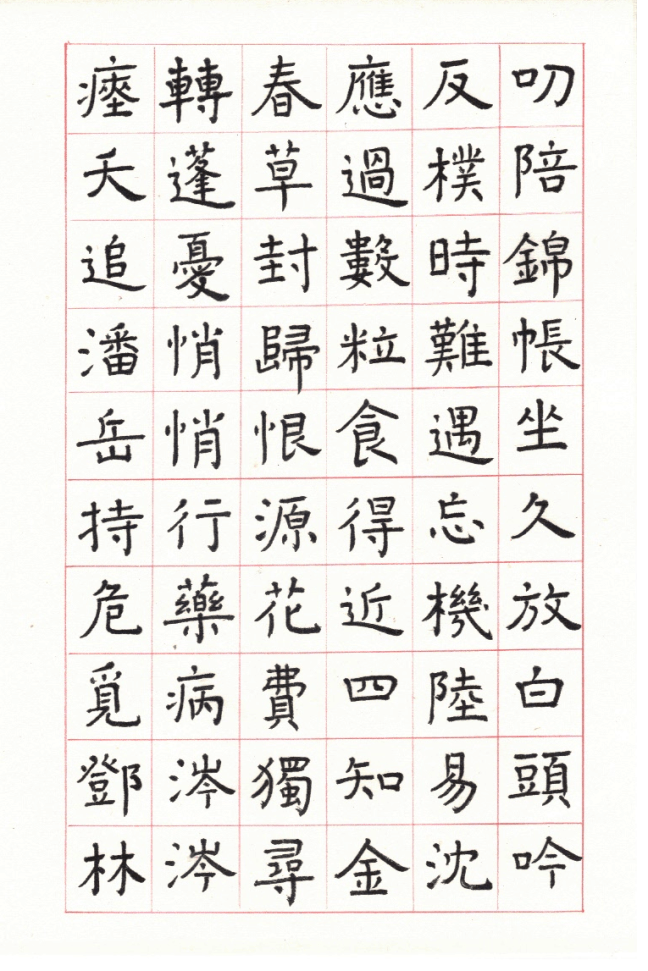 叨陪錦帳坐久放白頭吟
反樸時難遇忘機陸易沈
應過數粒食得近四知金
春草封歸恨源花費獨尋
轉蓬憂悄悄行藥病涔涔
瘞夭追潘岳持危覓鄧林